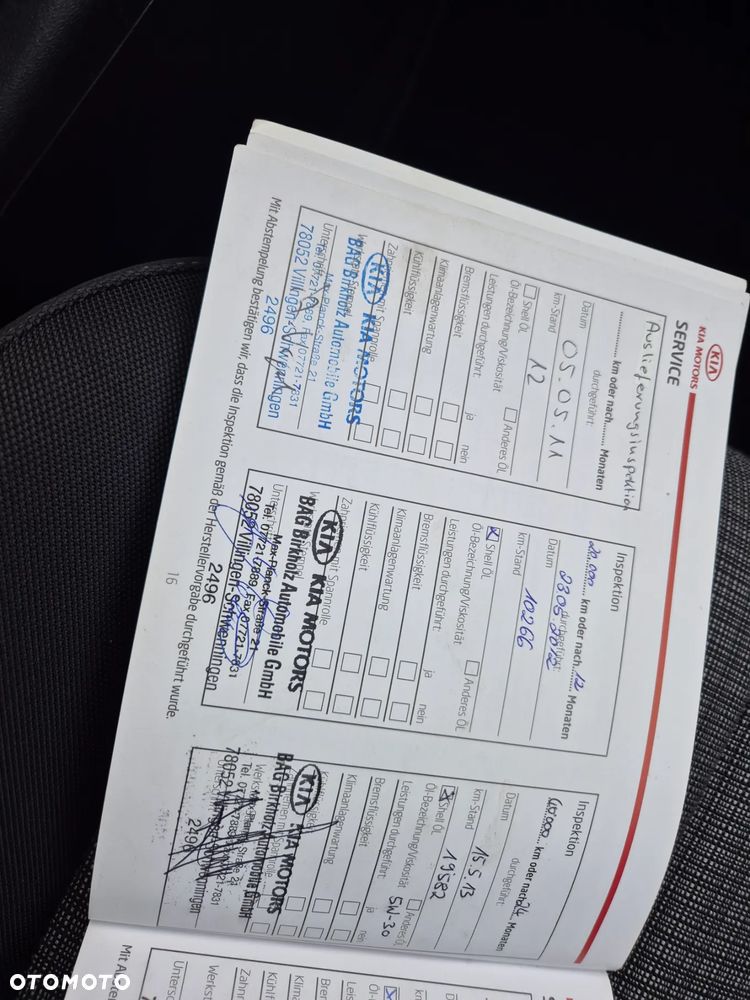 KIA
KIA MOTORS
SERVICE
Auslieferungsinspektion
............ km oder nach......... Monaten
durchgeführt:
Datum 05.05.11
km-Stand 12
Shell Öl Anderes ÖL
Öl-Bezeichnung/Viskosität
Leistungen durchgeführt: ja nein
Bremsflüssigkeit
Klimaanlagenwartung
Kühlflüssigkeit
KIA KIA MOTORS
BAG Birkholz Automobile GmbH
Max-Planck-Straße 21
78052 Villingen-Schwenningen
2496
Inspektion
20.000 km oder nach 12 Monaten
durchgeführt:
Datum
km-Stand 10266
Shell ÖL Anderes ÖL
Öl-Bezeichnung/Viskosität
Leistungen durchgeführt: ja nein
Bremsflüssigkeit
Klimaanlagenwartung
Kühlflüssigkeit
KIA KIA MOTORS
BAG Birkholz Automobile GmbH
Max-Planck-Straße 21
78052 Villingen-Schwenningen
2496
Inspektion
40.000 km oder nach 24 Monaten
durchgeführt:
Datum 15.5.13
km-Stand 19582
Shell ÖL Anderes ÖL
Öl-Bezeichnung/Viskosität 5W-30
Leistungen durchgeführt: ja nein
Bremsflüssigkeit
Klimaanlagenwartung
Kühlflüssigkeit
KIA KIA MOTORS
BAG Birkholz Automobile GmbH
78052
2496
Mit Abstempelung bestätigen wir, dass die Inspektion gemäß der Herstellervorgabe durchgeführt wurde.
16
OTOMOTO